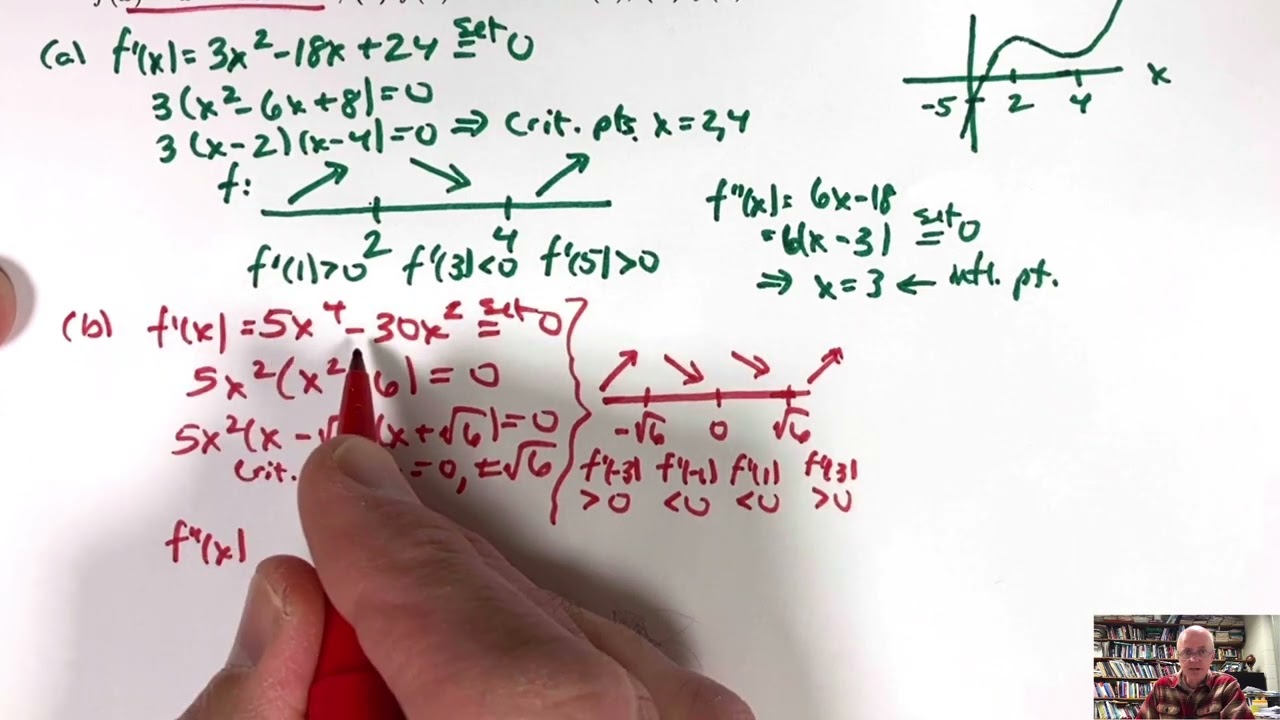 (a) f'(x) = 3x² - 18x + 24 set= 0
3(x² - 6x + 8) = 0
3(x-2)(x-4) = 0 ⇒ Crit. pts. x = 2,4
f:
2 4
f'(1)>0 f'(3)<0 f'(5)>0
x
-5 2 4
f''(x) = 6x-18
= 6(x-3) set= 0
⇒ x = 3 ← infl. pt.
(b) f'(x) = 5x⁴ - 30x² set= 0
5x²(x² 6) = 0
5x²(x - √ (x+√6) = 0
Crit. = 0, ±√6
-√6 0 √6
f'(-3) f'(-1) f'(1) f'(3)
>0 <0 <0 >0
f''(x)